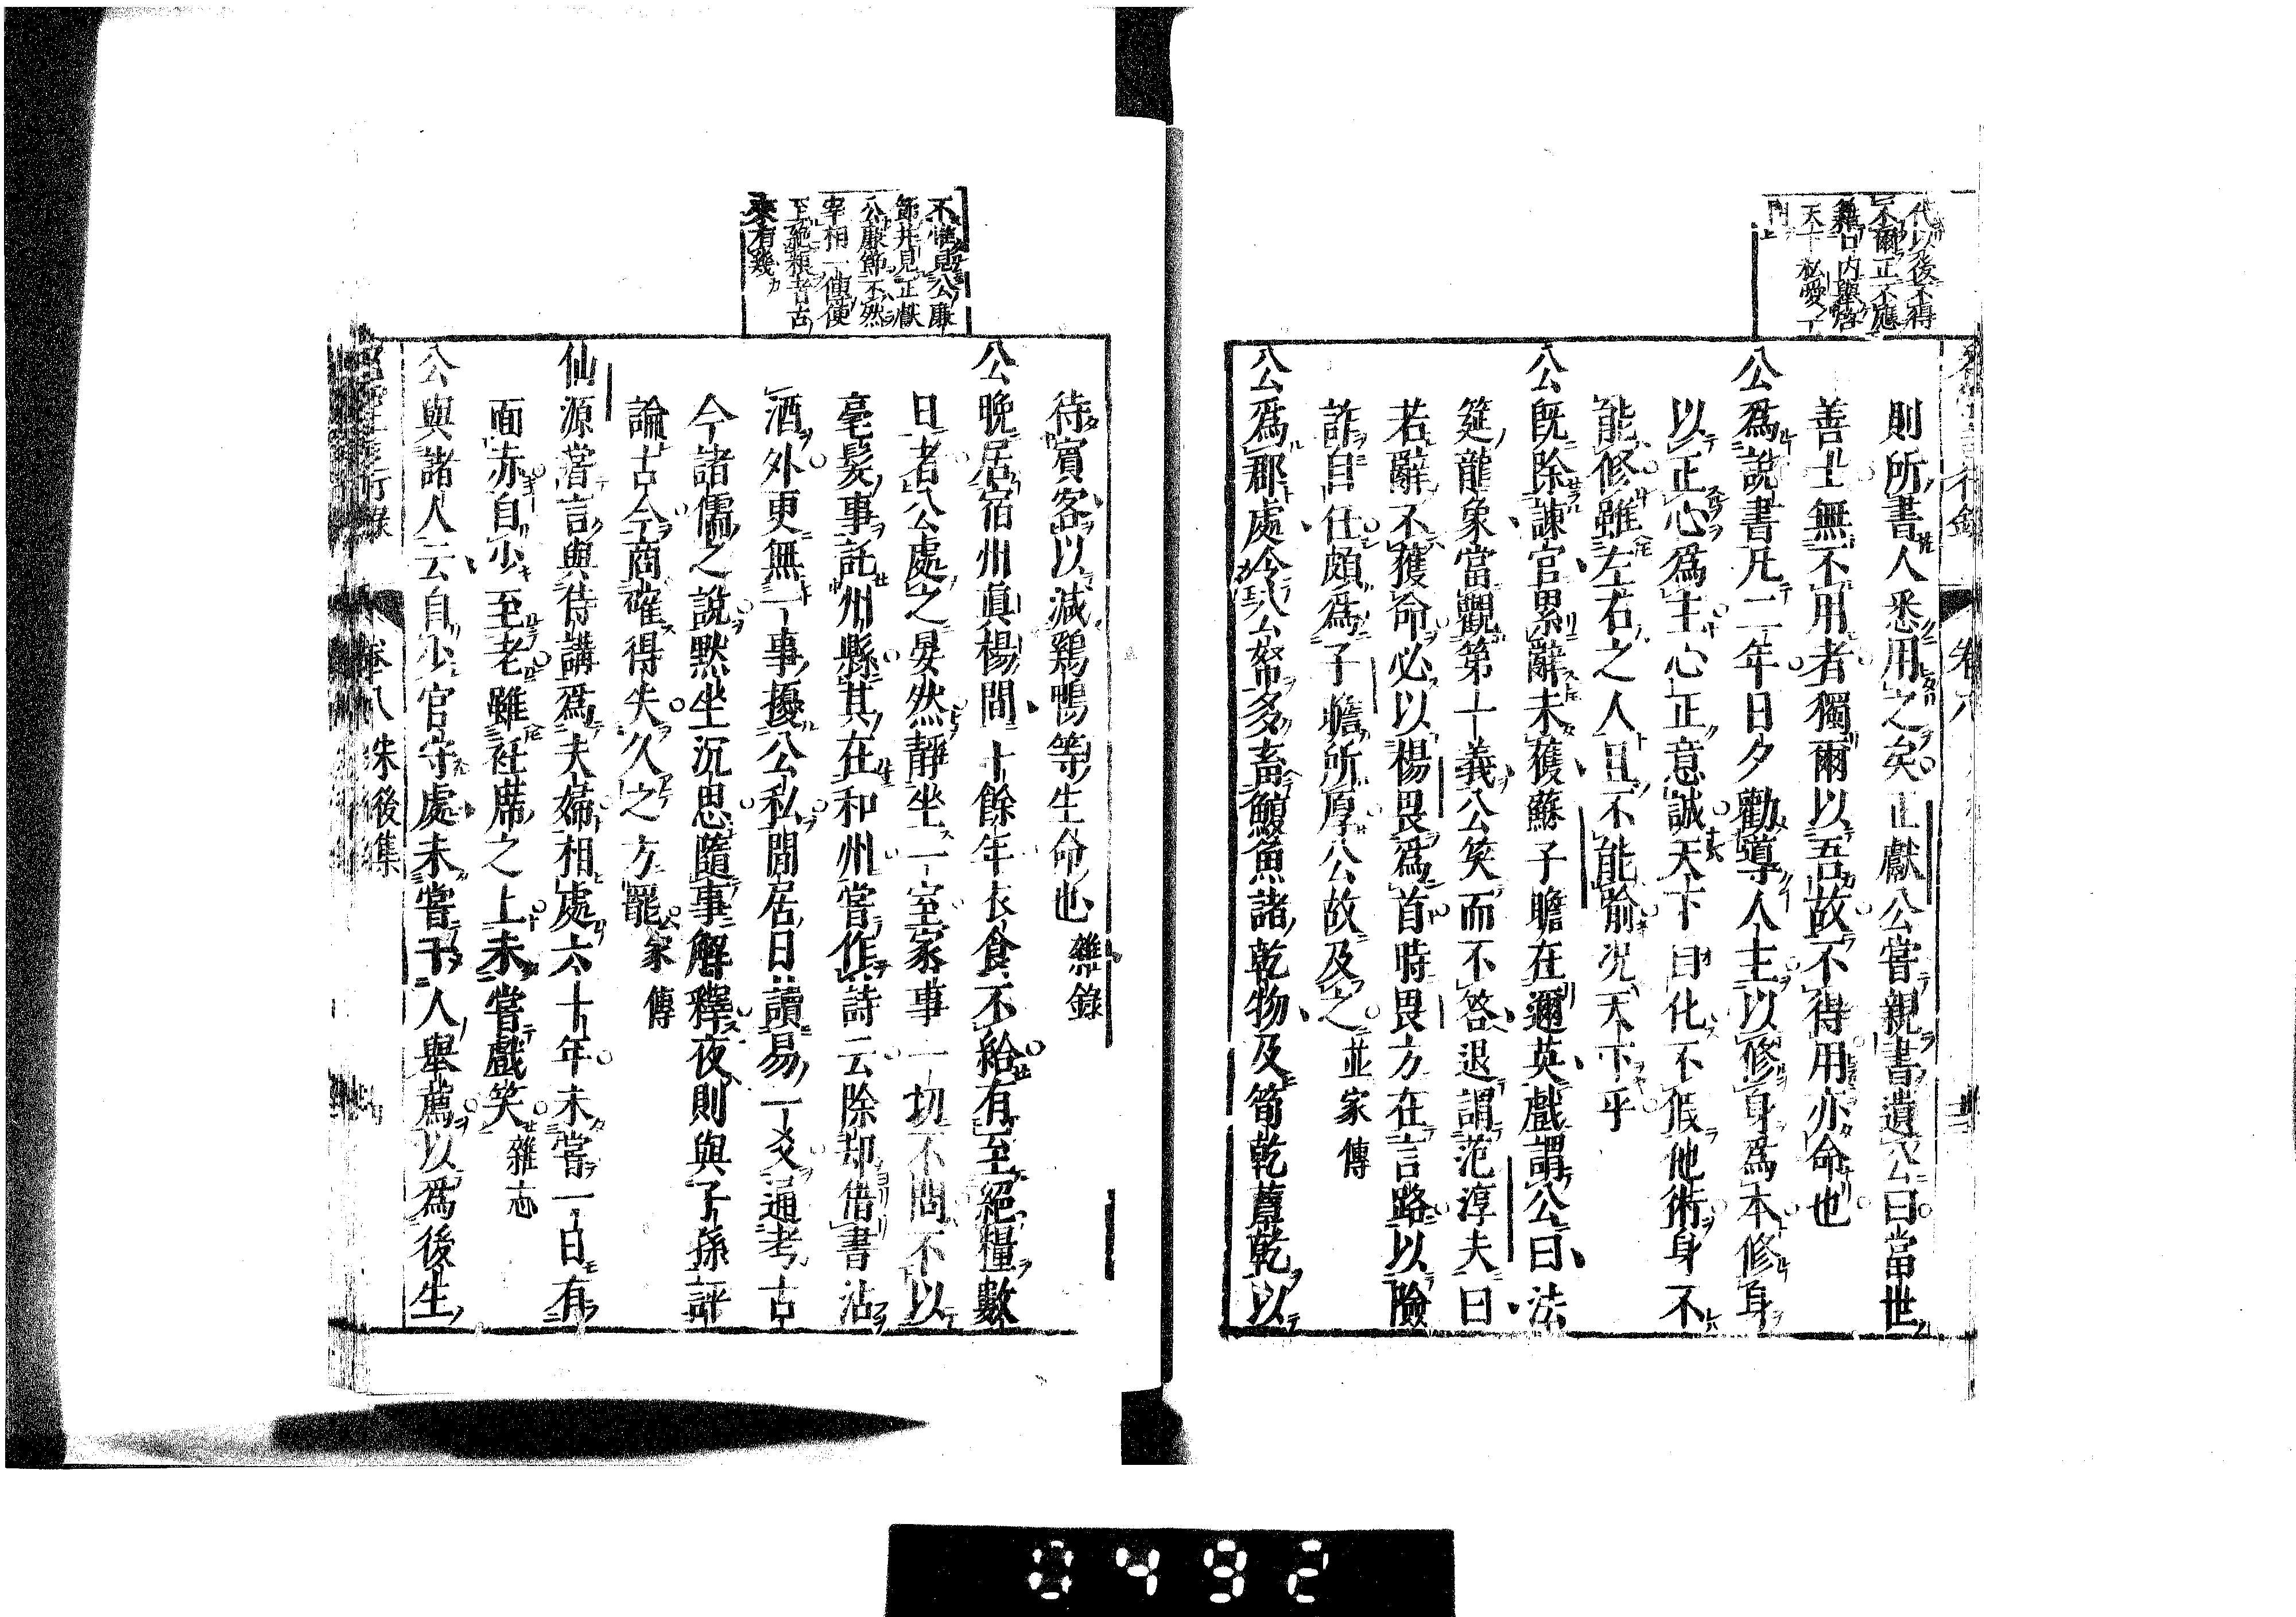 代以後不得
不爾正不應
天下私愛
門
則所書人悉用之矣正獻公嘗親書遺公曰當世
善士無不用者獨爾以吾故不得用亦命也
公爲說書凡二年日夕勸導人主以修身爲本修身
以正心爲主心正意誠天下自化不假他術身不
能修雖左右之人且不能喻况天下乎
公既除諫官累辭未獲蘇子瞻在邇英戲謂公曰法
筵龍象當觀第一義公笑而不答退謂范淳夫曰
若辭不獲命必以楊畏爲首時畏方在言路以險
詐自任頗爲子瞻所厚公故及之 並家傳
公爲郡處令公帑多畜鰒魚諸乾物及筍乾蕈乾以
不愧見公廉
節并見正獻
公廉節不然
宰相一傳便
至絶粮者古
來有幾
待賓客以減鷄鴨等生命也 雜錄
公晚居宿州眞楊間十餘年衣食不給有至絕糧數
日者公處之晏然靜坐一室家事一切不問不以
毫髮事託州縣其在和州嘗作詩云除却借書沽
酒外更無一事擾公私閒居日讀易一爻通考古
今諸儒之說默坐沉思隨事解釋夜則與子孫評
論古今商確得失久之方罷 家傳
仙源嘗言與侍講爲夫婦相處六十年未嘗一日有
面赤自少至老雖衽蓆之上未嘗戲笑 雜志
公與諸人云自少官守處未嘗干人舉薦以爲後生
行錄 卷八 朱後集
0492